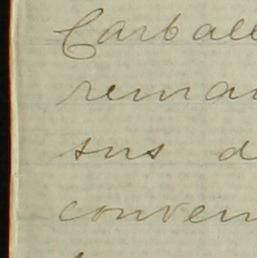 Carball
remar
sus d
conven